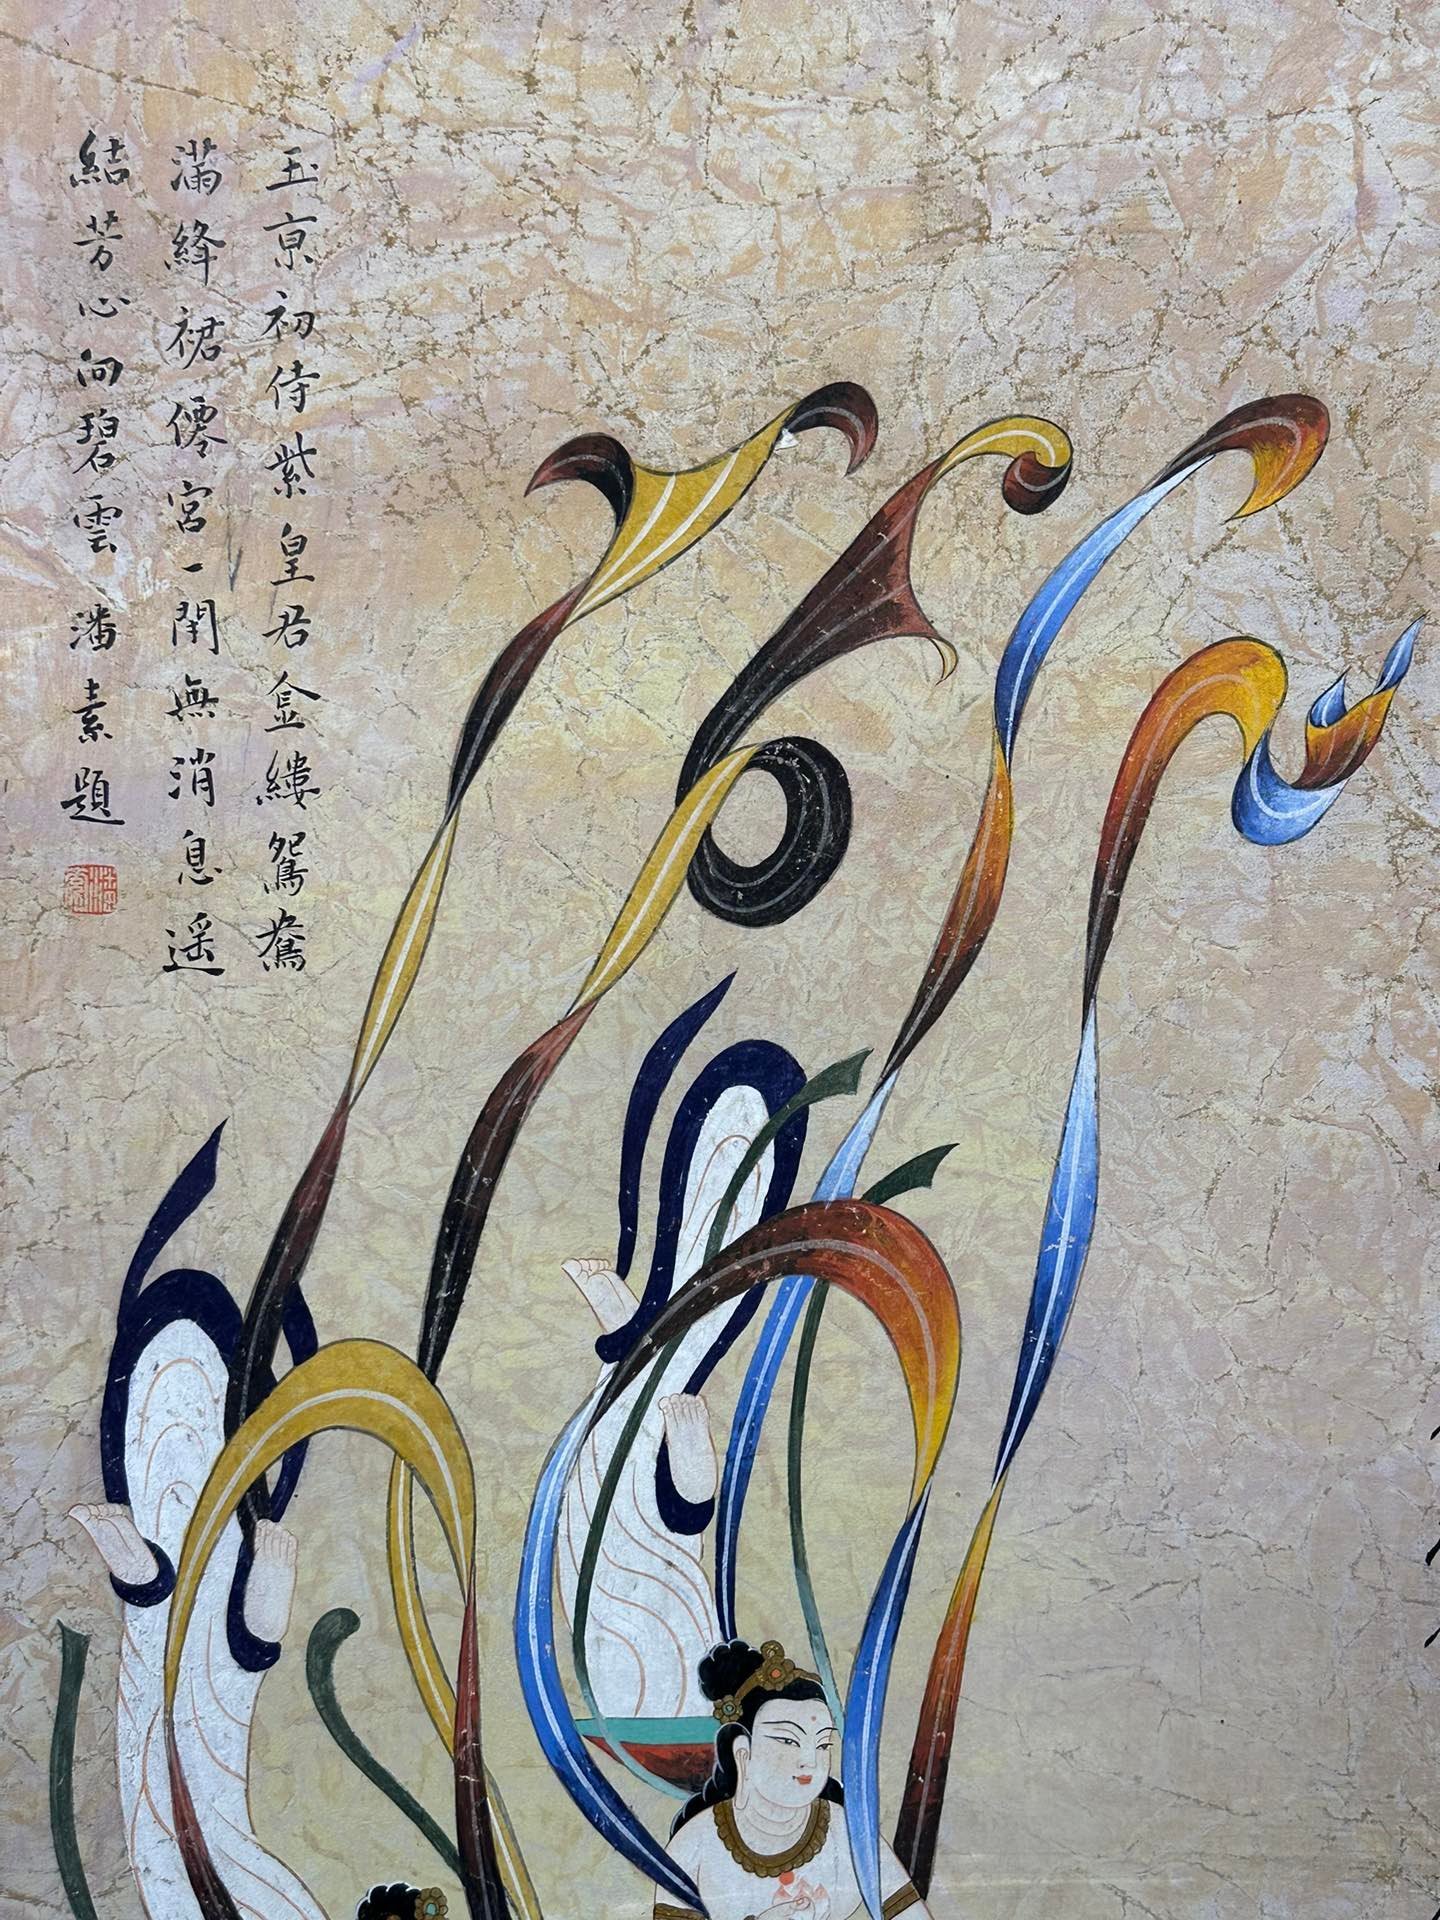 玉京初侍紫皇君金縷鴛鴦
滿絳裙僊宮一閉無消息遥
結芳心向碧雲 潘素題
潘素